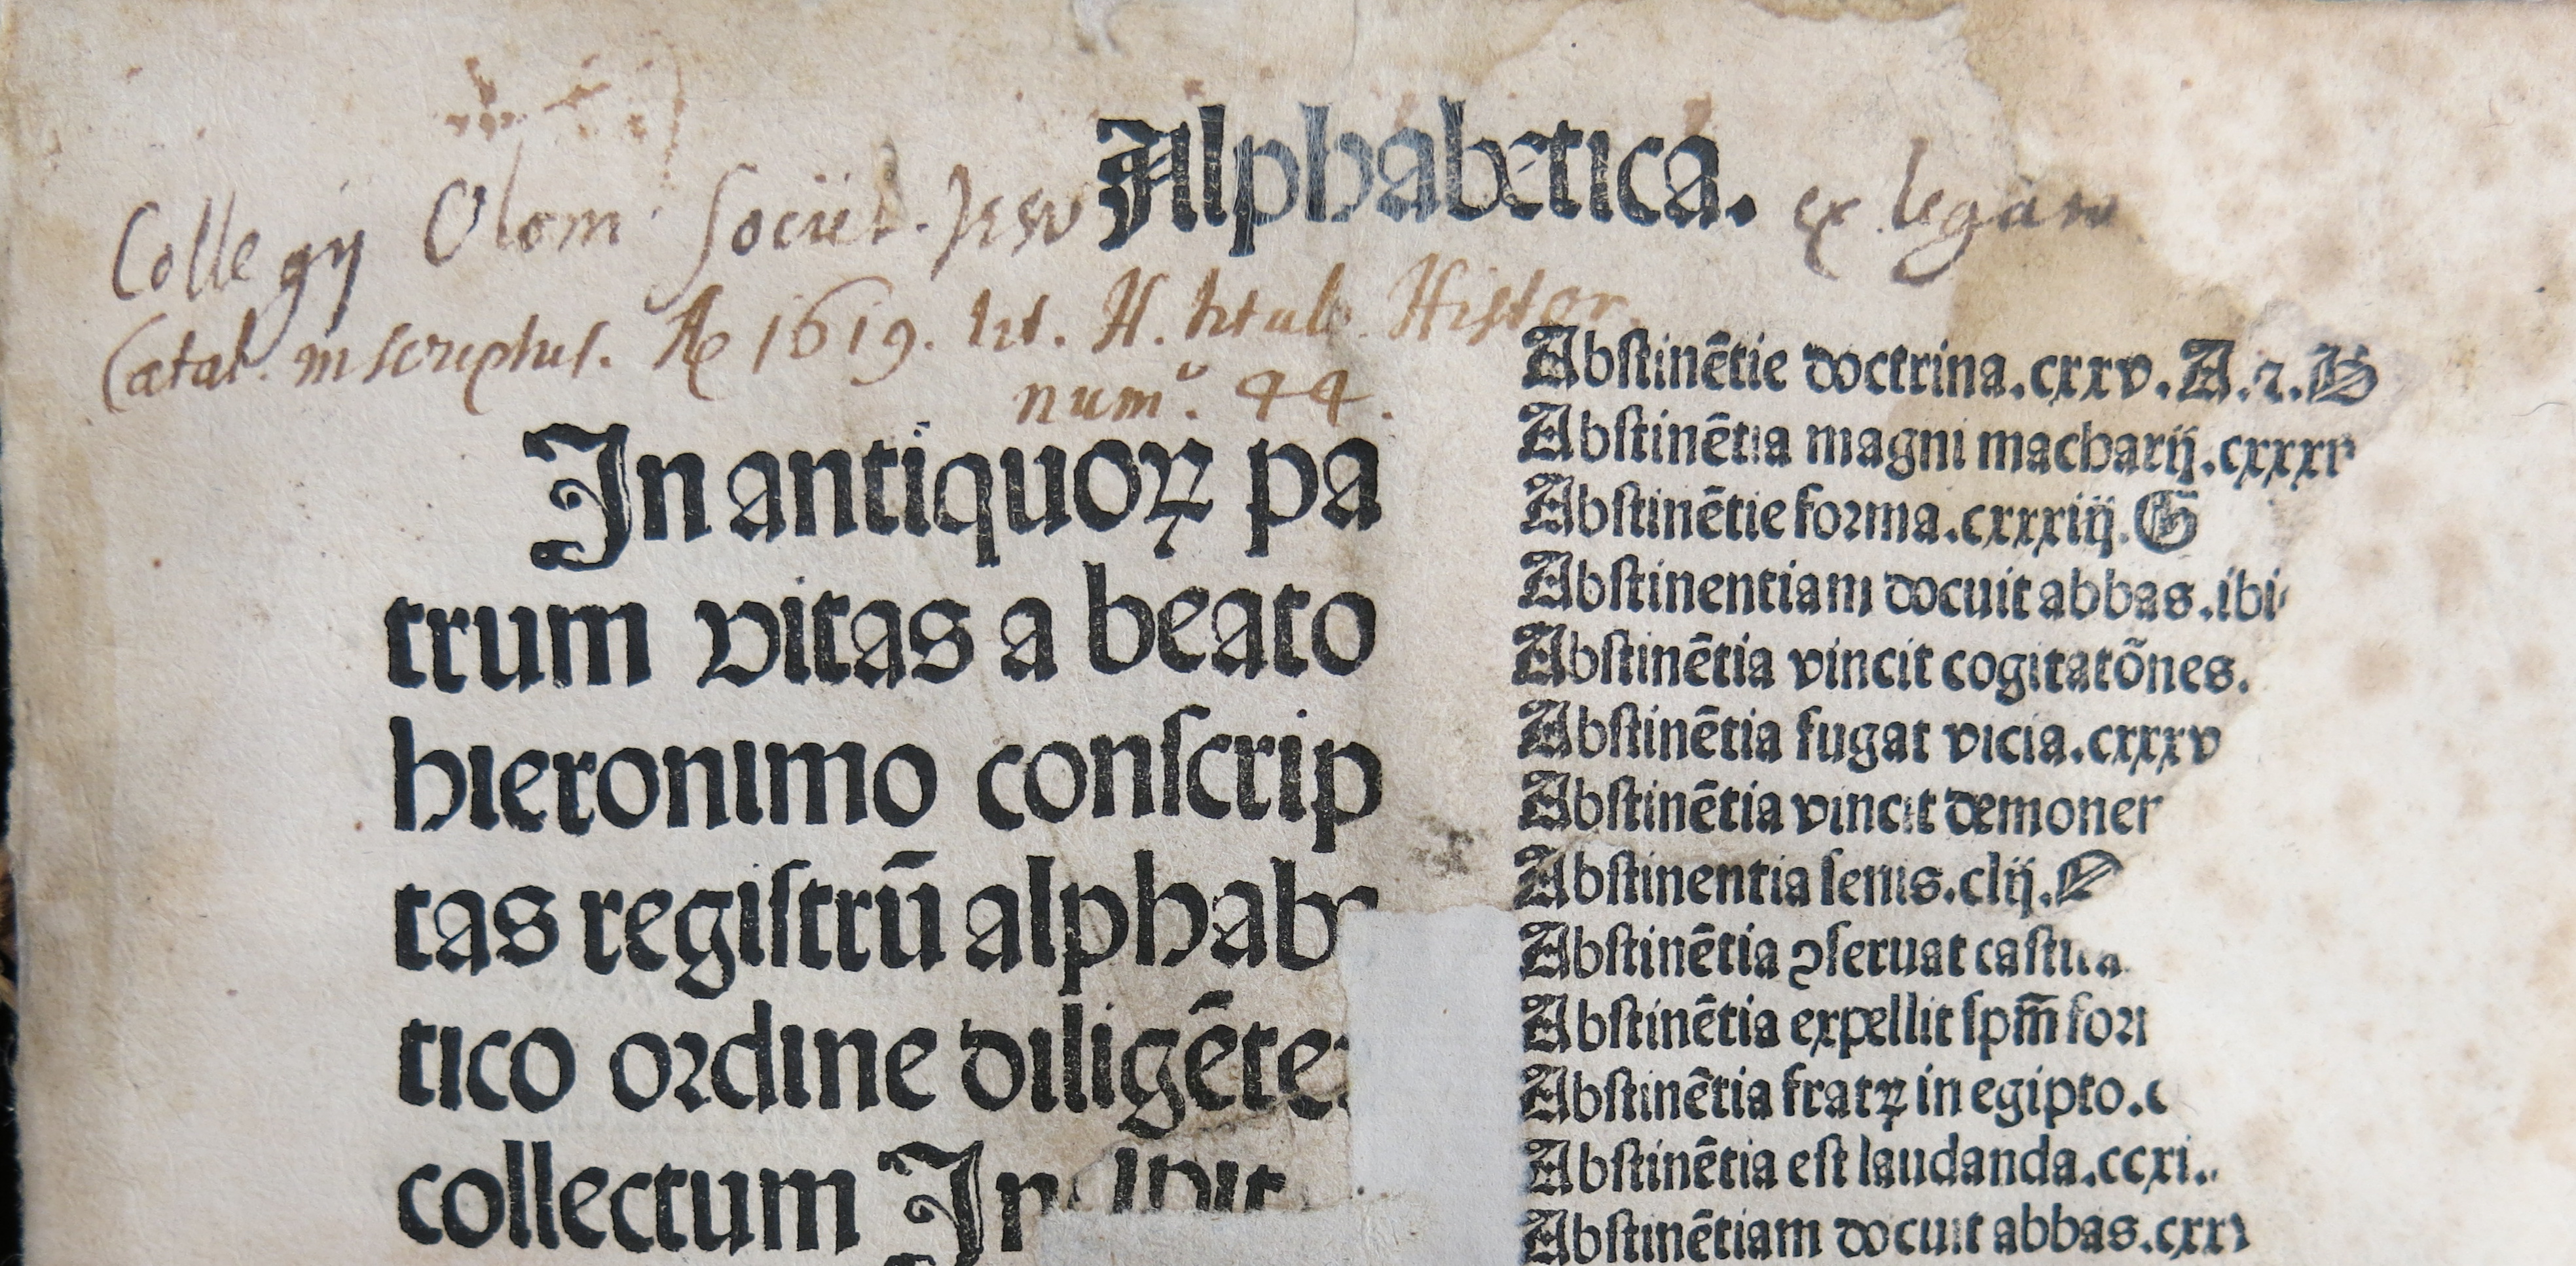 Collegij Olom: Societ. Jesu Alphabetica. ex
Catal. inscriptus. Ao 1619. lit. H. titulo Histor.
numº. 44.
In antiquoꝝ pa
trum vitas a beato
hieronimo conſcrip
tas regiſtrū alphabe
tico ordine diligēter
collectum
Abſtinētie doctrina.cxxv.A.⁊.B
Abſtinētia magni macharij.cxxxv
Abſtinētie forma.cxxxiij.G
Abſtinentiam docuit abbas.ibi
Abſtinētia vincit cogitatōnes.
Abſtinētia fugat vicia.cxxxv
Abſtinētia vincit demoner
Abſtinentia ſenis.clij.
Abſtinētia ꝯſeruat
Abſtinētia expellit ſpm̄ for
Abſtinētia fratꝝ in egipto.c
Abſtinētia eſt laudanda.ccxi.
Abſtinētiam docuit abbas.cxx